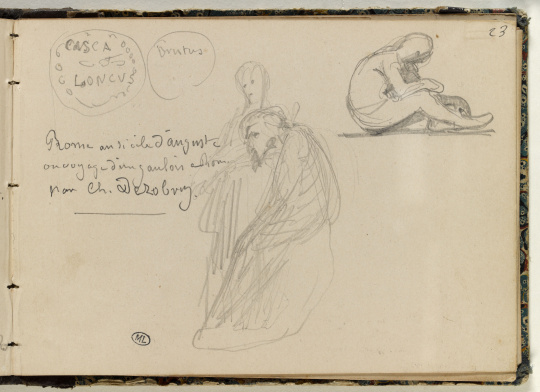 CASCA
LONGVS
Brutus
23
Rome au siècle d'auguste
ou voyage d'un gaulois a Rome
par Ch. Dezobry.
ML